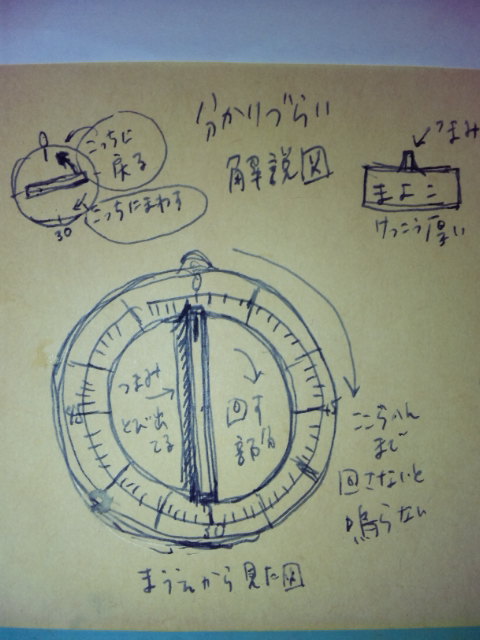 分かりづらい
解説図
0
こっちに
戻る
こっちにまわす
30
つまみ
まよこ
けっこう厚い
0
つまみ
とび出
てる
回す
部分
45
30
ここらへん
まで
回さないと
鳴らない
まうえから見た図